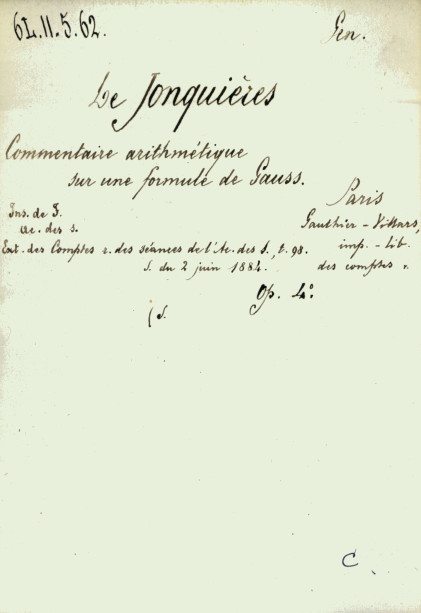 6L.11.5.62.
Gen.
De Jonquières
Commentaire arithmétique
sur une formule de Gauss.
Paris
Ins. de F.
Ac. des s.
Gauthier-Villars,
imp.-lib.
Ext. des Comptes r. des séances de l'Ac. des S., t. 98.
des comptes r.
S. du 2 juin 1884.
Op. 4°.
(S.
C